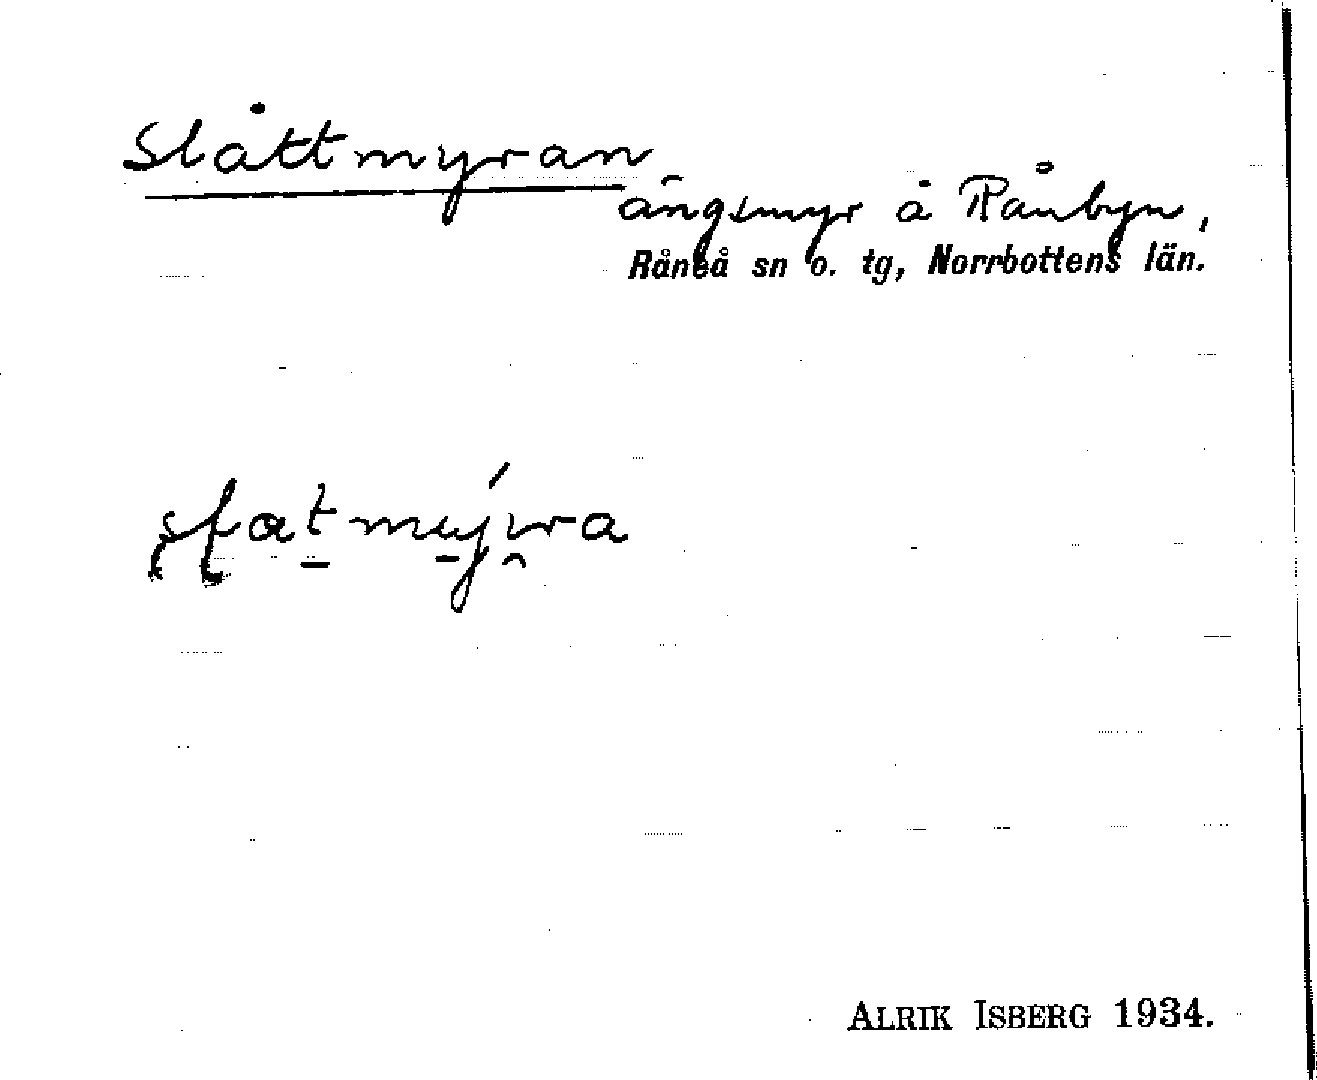 Slåttmyran
ängsmyr å Rånbyn,
Råneå sn o. tg, Norrbottens län.
ALRIK ISBERG 1934.